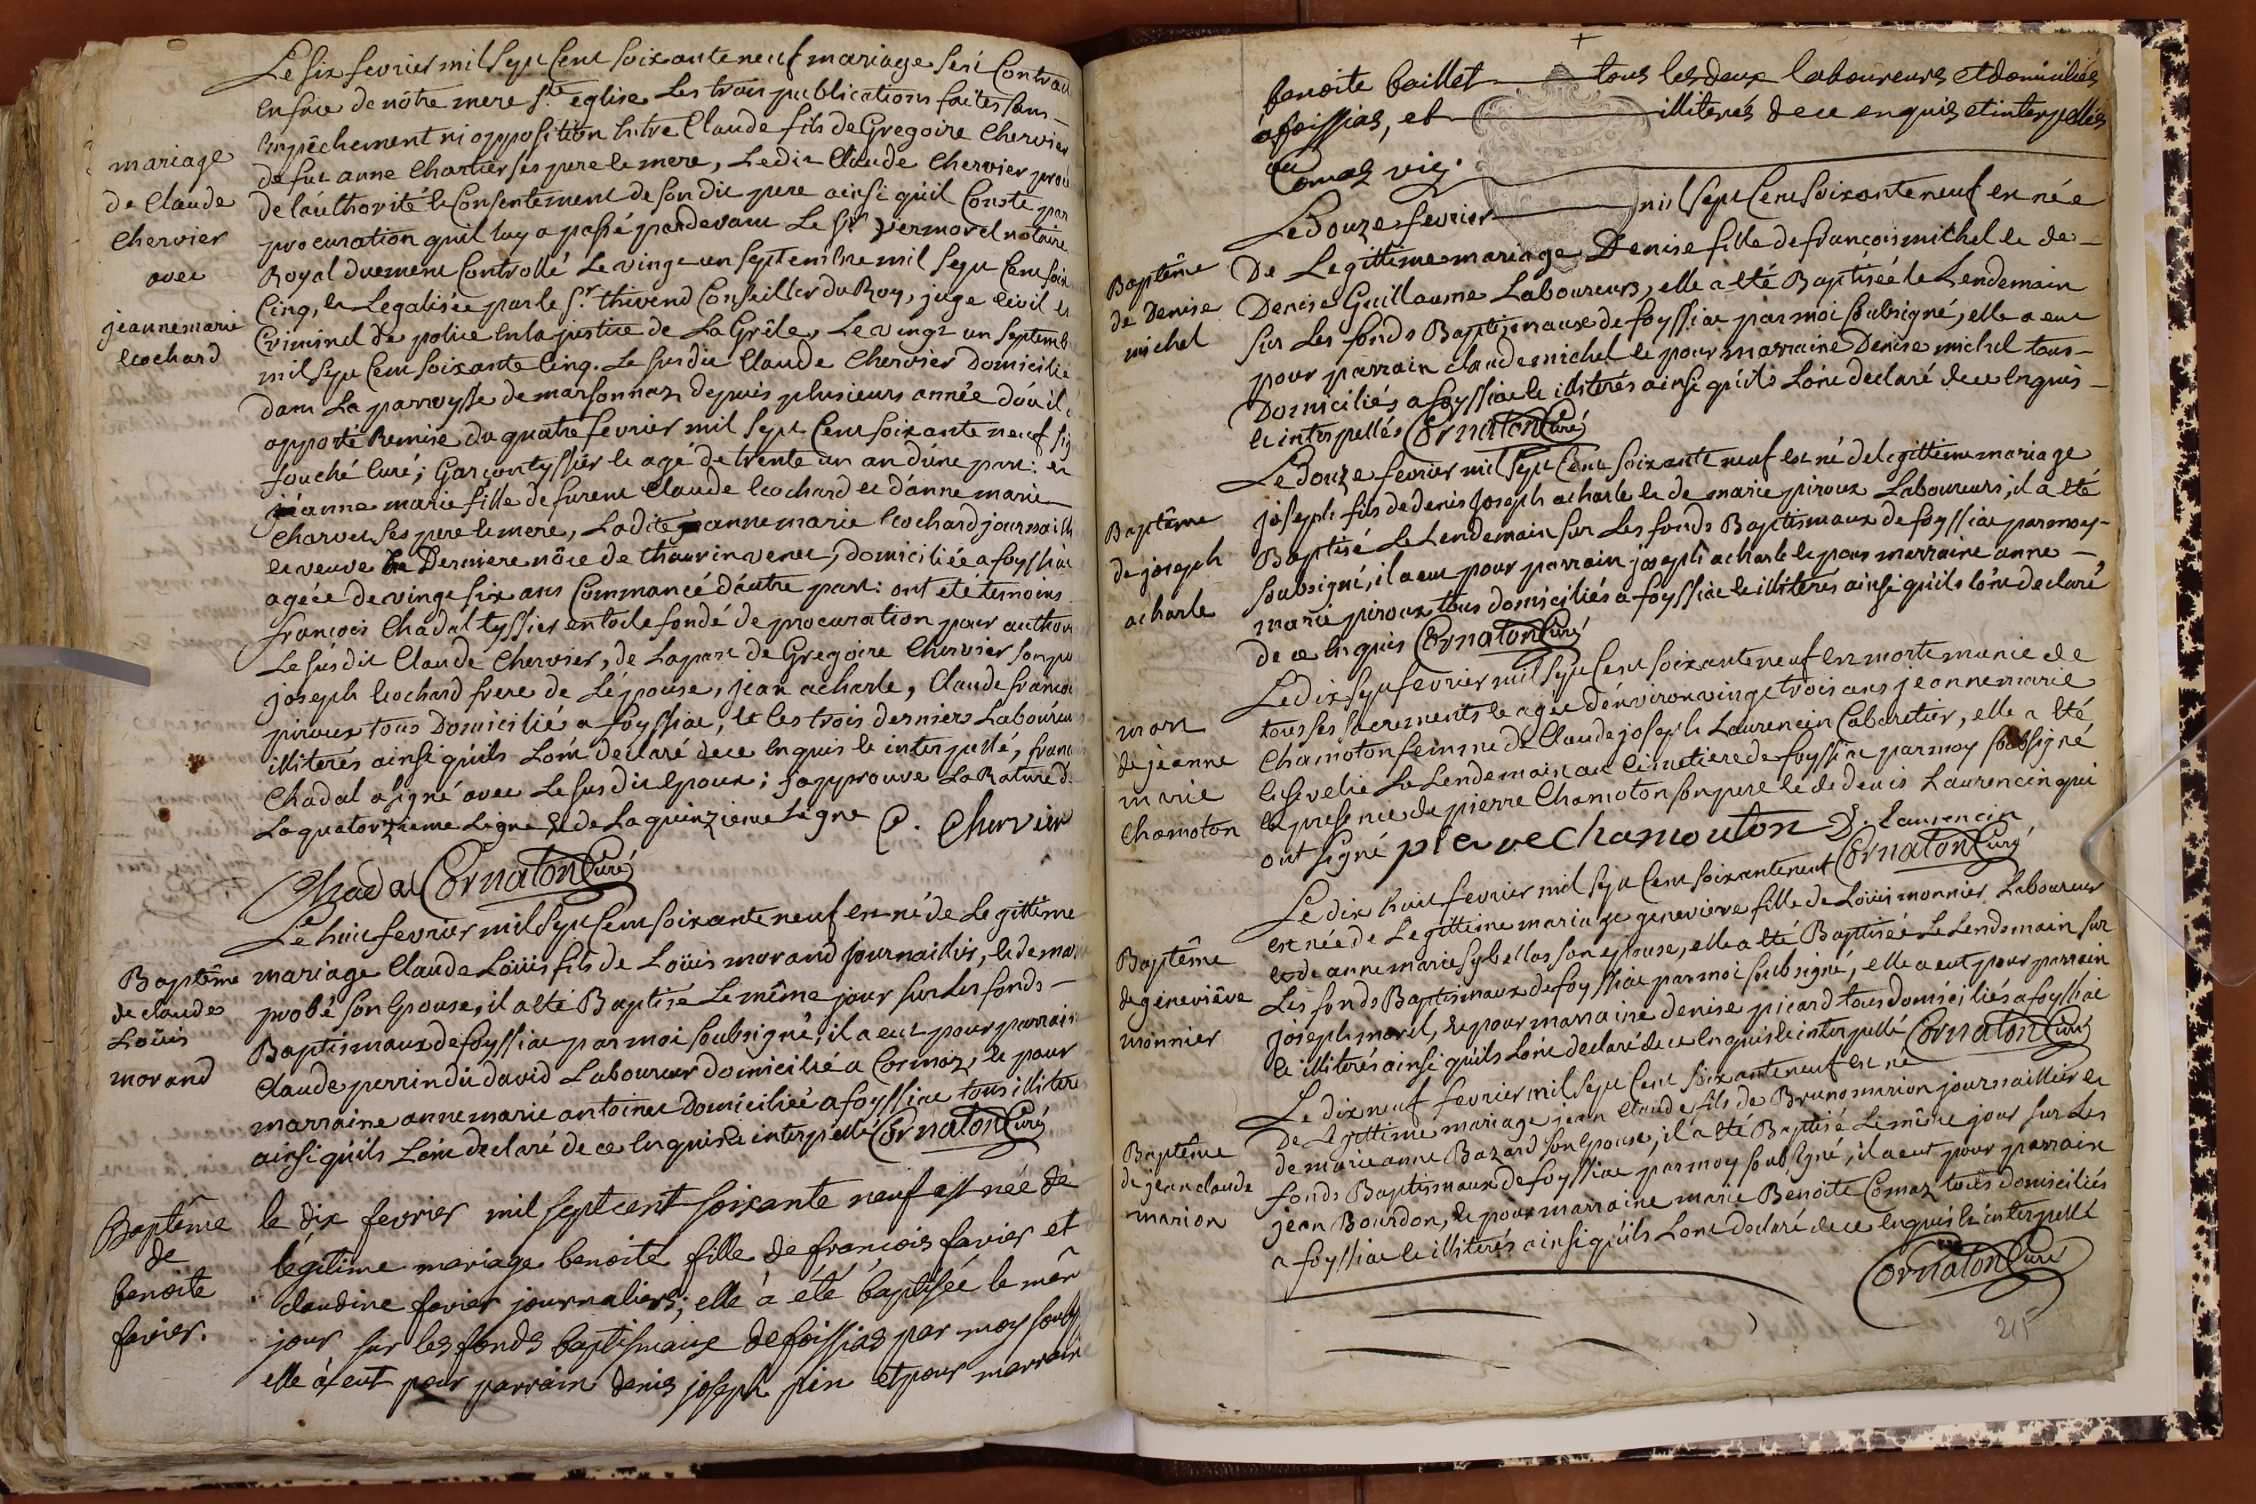 mariage
de Claude
Chervier
avec
jeanne marie
ecochard
Le six fevrier mil sept Cent soixante neuf mariage s'est Contrac
en face de nôtre mere ste eglise Les trois publications faites sans
Empêchement ni opposition Entre Claude fils de Gregoire Chervier
de fut anne Chartier ses pere et mere, Ledit Claude Chervier
de l'authorité et Consentement de son dit pere ainsi qu'il Conste par
procuration qu'il luy a passé pardevant Le Sr vermorel notaire
Royal duement Controllé Le vingt un septembre mil sept Cent soix
Cinq, et Legalisée par le Sr thivend Conseiller du Roy, juge Civil et
Criminel de police en la justice de La Grêle, Le vingt un septemb
mil sept Cent soixante Cinq. Le susdit Claude Chervier Domicilié
dans La parroysse de marsonnaz depuis plusieurs année d'où il
apporté Remise du quatre fevrier mil sept Cent soixante neuf sig
fouché Curé; Garçon tyssier et agé de trente un an d'une part: et
jeanne marie fille de furent Claude Ecochard et d'anne marie
Charvet ses pere et mere, Ladite jeanne marie Ecochard journaill
et veuve en Derniere nôce de thaurin venet, domiciliée a foyssiac
agéée de vingt six ans Commancé d'autre part: ont eté temoins
françois Chadal tyssier en toile fondé de procuration pour author
Le susdit Claude Chervier, de La part de Gregoire Chervier son pe
joseph Ecochard frere de L'épouse, jean acharle, Claude françoi
piroux tous Domicilié a foyssiac, et les trois derniers Laboureur
illiterés ainsi qu'ils L'ont declaré de ce Enquis et interpellé, franc
Chadal a signé avec Le susdit Epoux; j'approuve La Rature d
La quatorzieme Ligne et de La quinzieme Ligne C. Chervier
Chadal Cornaton Curé
Baptême
de claude
Loüis
morand
Le huit fevrier mil sept Cent soixante neuf est né de Legittime
mariage Claude Loüis fils de Loüis morand journaillier, et de mar
probé son Epouse, il a eté Baptisé Le même jour sur Les fonds
Baptismaux de foyssiac par moi soubsigné, il a eut pour parrain
Claude perrin dit david Laboureur domicilié a Cormoz, et pour
marraine anne marie antoinet Domiciliée a foyssiac tous illiteré
ainsi qu'ils L'ont declaré de ce Enquis et interpellé Cornaton Curé
Baptême
de
benoite
favier.
le dix fevrier mil sept cent soixante neuf est née de
légitime mariage benoite fille de françois favier et
claudine favier journaliers; elle à été baptisée le mêm
jour sur les fonds baptismaux de foissias par moy soubs
elle à eut pour parrain denis joseph pin et pour marraine
benoite baillet tous les deux laboureurs et domiciliés
a foissias, et illiterés de ce enquis et interpellés
Comaz vic.
Baptême
de Denise
michel
Le Douze fevrier mil sept Cent soixante neuf est née
De Legittime mariage Denise fille de françois michel et de
Denise Guillaume Laboureurs, elle a eté Baptisée le Lendemain
sur Les fonds Baptismaux de foyssiac par moi soubsigné, elle a eut
pour parrain claude michel et pour marraine Denise michel tous
Domiciliés a foyssiac et illiterés ainsi qu'ils L'ont declaré de ce Enquis
et interpellés Cornaton Curé
Baptême
de joseph
acharle
Le Douze fevrier mil sept Cent soixante neuf est né de legittime mariage
joseph fils de denis joseph acharle et de marie piroux Laboureurs, il a eté
Baptisé Le Lendemain sur Les fonds Baptismaux de foyssiac par moy
soubsigné, il a eut pour parrain joseph acharle et pour marraine anne
marie piroux tous domiciliés a foyssiac et illiterés ainsi qu'ils l'ont declaré
de ce Enquis Cornaton Curé
mort
de jeanne
marie
Chamoton
Le dix sept fevrier mil sept Cent soixante neuf est morte munie de
tous ses sacrements et agée d'environ vingt trois ans jeanne marie
Chamoton femme de Claude joseph Laurencin Cabaretier, elle a eté
Ensevelie Le Lendemain au Cimetiere de foyssiac par moy soubsigné
en presence de pierre Chamoton son pere et de denis Laurencin qui
ont signé pierre Chamouton D. Laurencin
Cornaton Curé
Baptême
de geneviêve
monnier
Le dix huit fevrier mil sept Cent soixante neuf
est née de Legittime mariage genevieve fille de Loüis monnier Laboureur
et de anne marie sybellas son epouse, elle a eté Baptisée Le Lendemain sur
Les fonds Baptismaux de foyssiac par moi soubsigné, elle a eut pour parrain
joseph morel, et pour marraine denise picard tous domiciliés a foyssiac
et illiterés ainsi qu'ils L'ont declaré de ce Enquis et interpellé Cornaton Curé
Baptême
de jean claude
marion
Le dix neuf fevrier mil sept Cent soixante neuf est né
De Legittime mariage jean Claude fils de Bruno marion journaillier et
de marie anne Bazard son Epouse, il a eté Baptisé Le même jour sur Les
fonds Baptismaux de foyssiac par moy soubsigné, il a eut pour parrain
jean Bourdon, et pour marraine marie Benoite Comaz tous domiciliés
a foyssiac et illiterés ainsi qu'ils L'ont declaré de ce Enquis et interpellé
Cornaton Curé
215